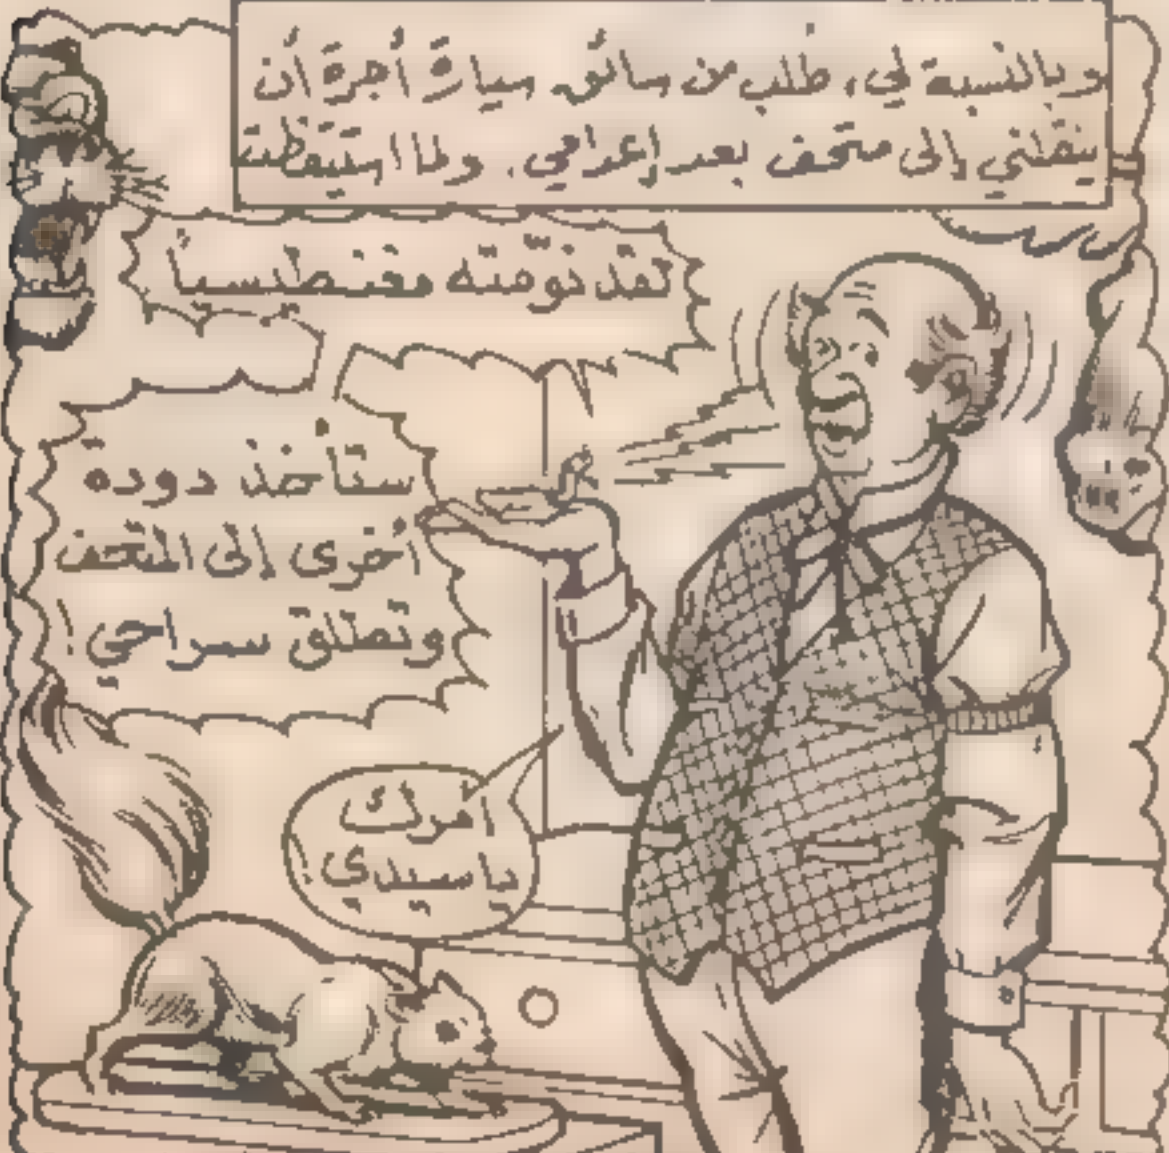 وبالنسبة لي، طلب من سائق سيارة أجرة أن
ينقلني إلى متحف بعد إعدامي. ولما استيقظت
لقد نوّمته مغنطيسياً
ستأخذ دودة
أخرى إلى المتحف
وتطلق سراحي!
امرك
يا سيدي!